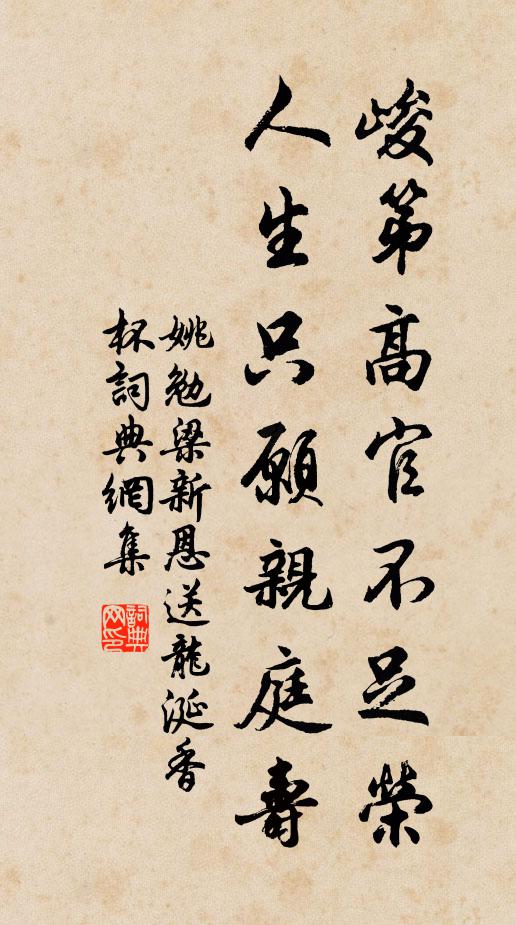 峻第高官不足榮
人生只願親庭壽
姚勉梁新恩送龍涎香
杯詞典網集
詞典網印